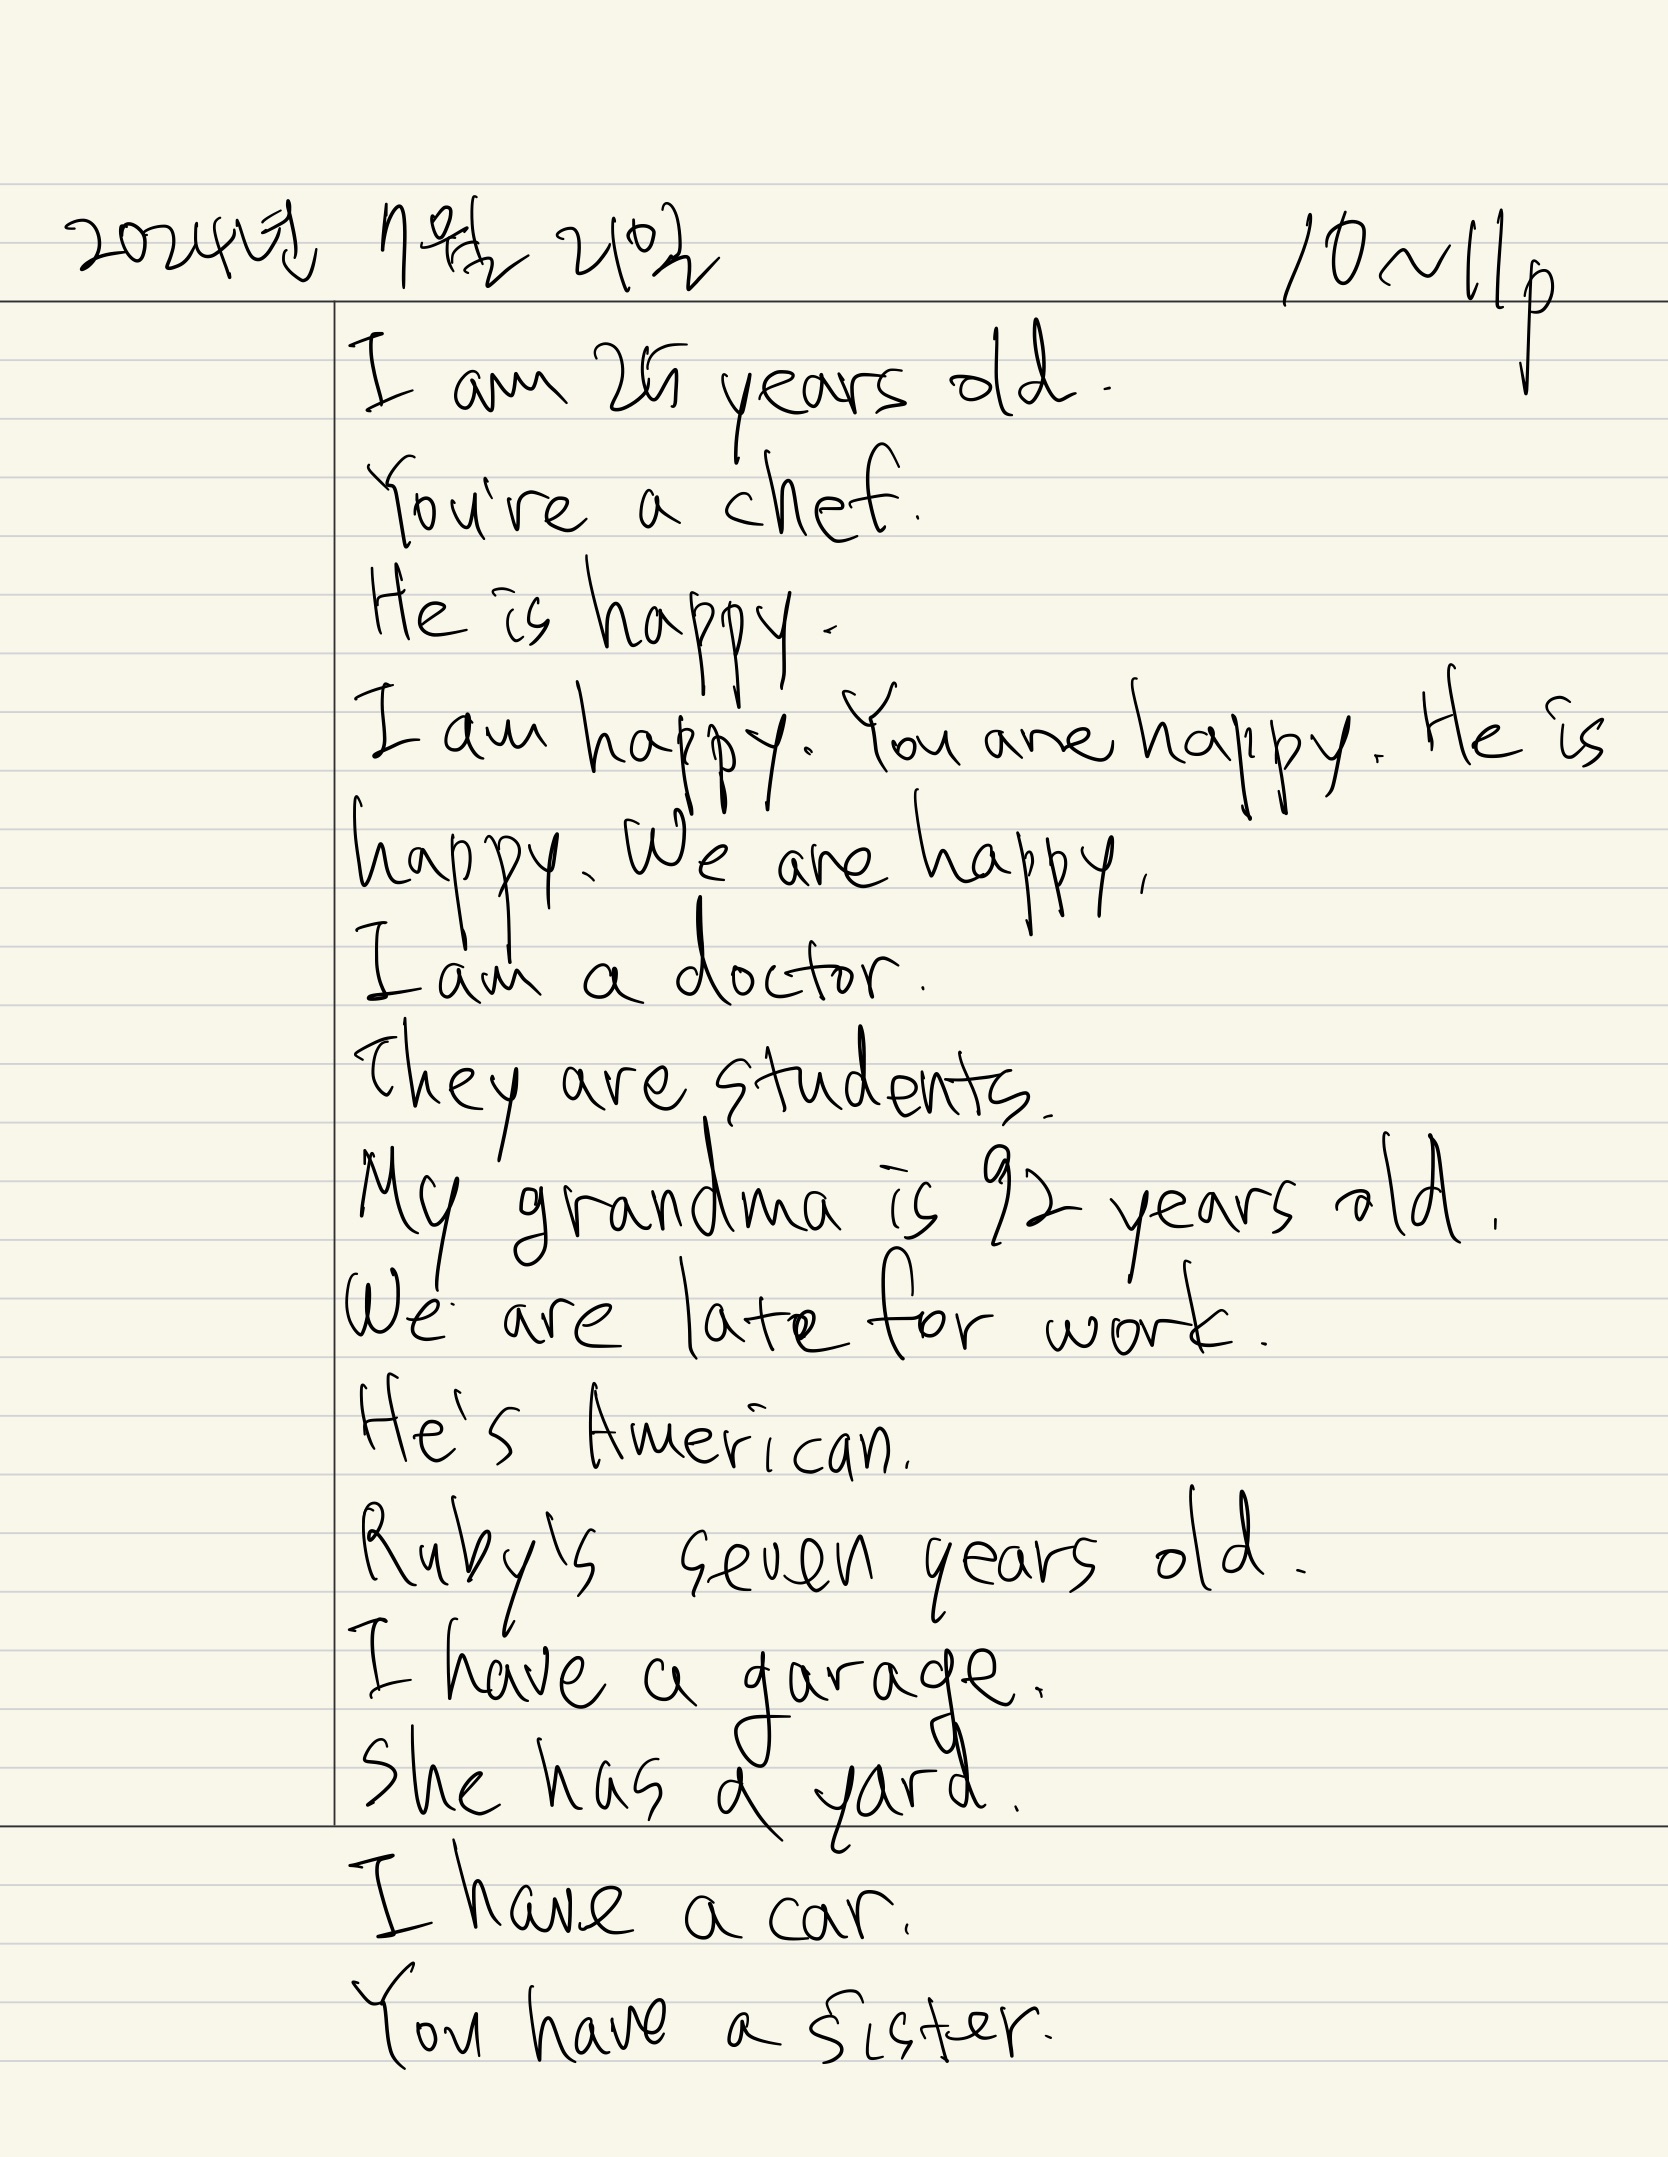 2024년 7월 21일 10~11p
I am 25 years old.
You're a chef.
He is happy.
I am happy. You are happy. He is
happy. We are happy.
I am a doctor.
They are students.
My grandma is 92 years old.
We are late for work.
He's American.
Ruby's seven years old.
I have a garage.
She has a yard.
I have a car.
You have a sister.